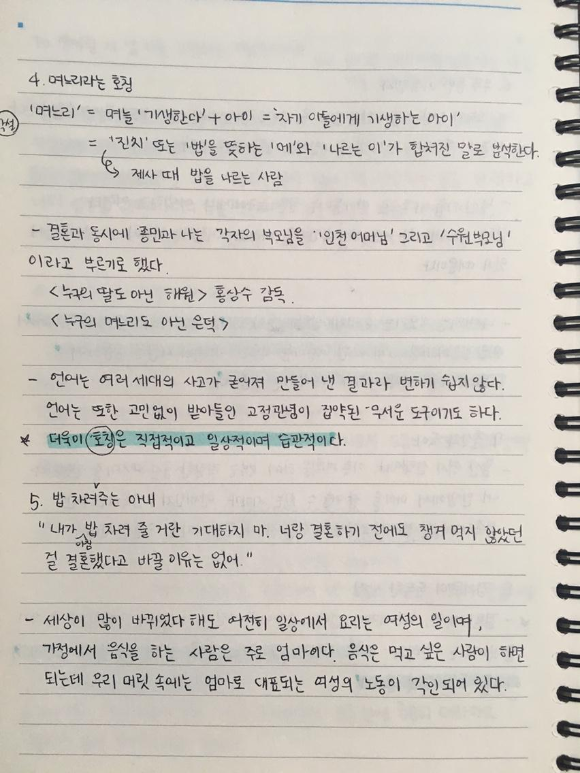 4. 며느리라는 호칭
'며느리' = 며늘 '기생한다' + 아이 = '자기 아들에게 기생하는 아이'
= '진지' 또는 '밥'을 뜻하는 '메'와 '나르는 이'가 합쳐진 말로 분석한다.
↳ 제사 때 밥을 나르는 사람
- 결혼과 동시에 종민과 나는 각자의 부모님을 '인천어머님' 그리고 '수원부모님'
이라고 부르기로 했다.
<누구의 딸도 아닌 해원> 홍상수 감독.
<누구의 며느리도 아닌 은덕>
- 언어는 여러 세대의 사고가 굳어져 만들어 낸 결과라 변하기 쉽지않다.
언어는 또한 고민없이 받아들인 고정관념이 집약된 무서운 도구이기도 하다.
* 더욱이 호칭은 직접적이고 일상적이며 습관적이다.
5. 밥 차려∨주는 아내
"내가 아침 밥 차려 줄 거란 기대하지 마. 너랑 결혼하기 전에도 챙겨 먹지 않았던
걸 결혼했다고 바꿀 이유는 없어."
- 세상이 많이 바뀌었다 해도 여전히 일상에서 요리는 여성의 일이며,
가정에서 음식을 하는 사람은 주로 엄마이다. 음식은 먹고 싶은 사람이 하면
되는데 우리 머릿 속에는 엄마로 대표되는 여성의 노동이 각인되어 있다.